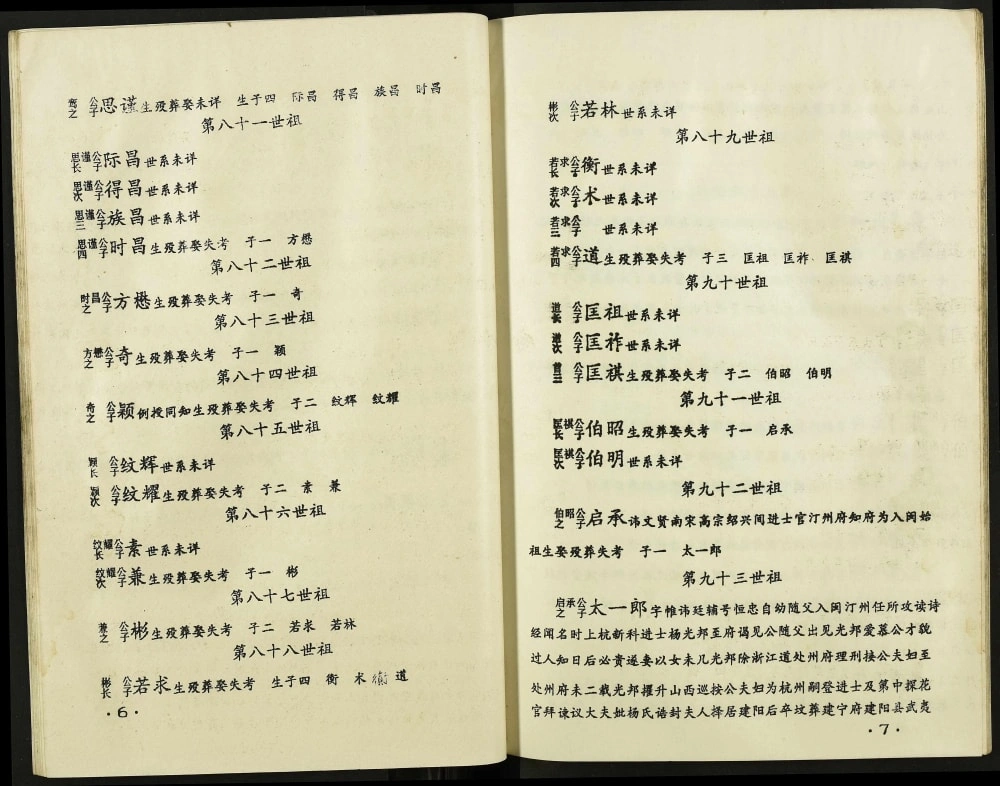 骞之公子思谨生殁葬娶未详 生子四 际昌 得昌 族昌 时昌
第八十一世祖
思谨长公子际昌世系未详
思谨次公子得昌世系未详
思谨三公子族昌世系未详
思谨四公子时昌生殁葬娶失考 子一 方懋
第八十二世祖
时昌之公子方懋生殁葬娶失考 子一 奇
第八十三世祖
方懋之公子奇生殁葬娶失考 子一 颖
第八十四世祖
奇之公子颖例授同知生殁葬娶失考 子二 纹辉 纹耀
第八十五世祖
颖长公子纹辉世系未详
颖次公子纹耀生殁葬娶失考 子二 素 兼
第八十六世祖
纹耀长公子素世系未详
纹耀次公子兼生殁葬娶失考 子一 彬
第八十七世祖
兼之公子彬生殁葬娶失考 子二 若求 若林
第八十八世祖
彬长公子若求生殁葬娶失考 生子四 衡 术 道
·6·
彬次公子若林世系未详
第八十九世祖
若求长公子衡世系未详
若求次公子术世系未详
若求三公子 世系未详
若求四公子道生殁葬娶失考 子三 匡祖 匡祚 匡祺
第九十世祖
道长公子匡祖世系未详
道次公子匡祚世系未详
道三公子匡祺生殁葬娶失考 子二 伯昭 伯明
第九十一世祖
匡祺长公子伯昭生殁葬娶失考 子一 启承
匡祺次公子伯明世系未详
第九十二世祖
伯昭之公子启承讳文贤南宋高宗绍兴间进士官汀州府知府为入闽始
祖生娶殁葬失考 子一 太一郎
第九十三世祖
启承之公子太一郎字帷讳廷辅号恒忠自幼随父入闽汀州任所攻读诗
经闻名时上杭新科进士杨光邦至府谒见公随父出见光邦爱慕公才貌
过人知日后必贵遂妻以女未几光邦除浙江道处州府理刑接公夫妇至
处州府未二载光邦擢升山西巡按公夫妇为杭州嗣登进士及第中探花
官拜谏议大夫妣杨氏诰封夫人择居建阳后卒坟葬建宁府建阳县武夷
·7·